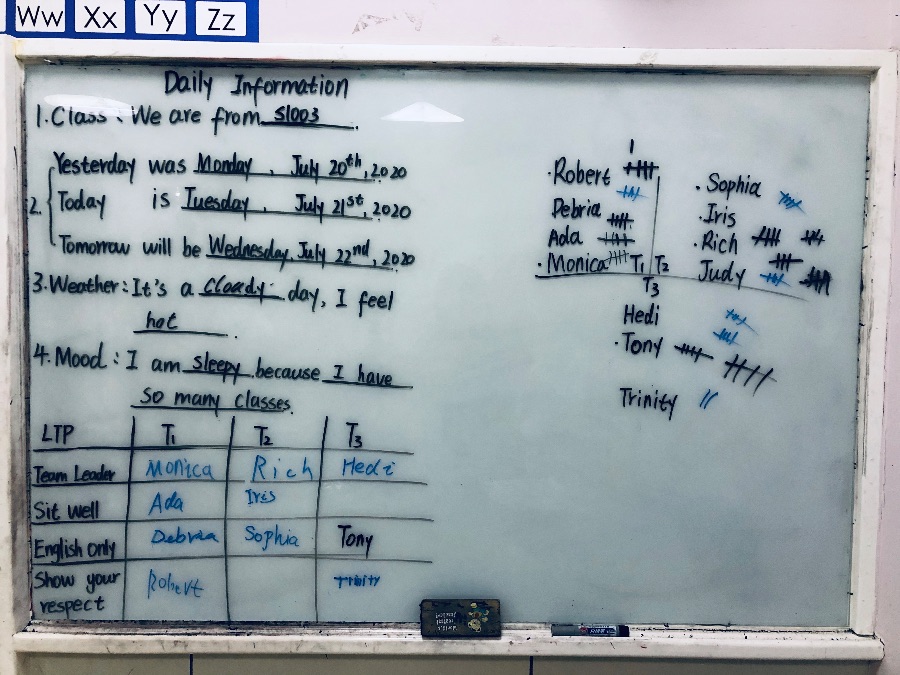 Ww Xx Yy Zz
Daily Information
1. Class: We are from S1003.
2. Yesterday was Monday, July 20th, 2020
Today is Tuesday, July 21st, 2020
Tomorrow will be Wednesday, July 22nd, 2020
3. Weather: It's a cloudy day, I feel
hot.
4. Mood: I am sleepy because I have
so many classes.
LTP T1 T2 T3
Team Leader Monica Rich Hedi
Sit well Ada Iris
English only Debria Sophia Tony
Show your respect Robert Trinity
1
· Robert
Debria
Ada
· Monica T1 T2
T3
· Sophia
· Iris
· Rich
Judy
Hedi
· Tony
Trinity